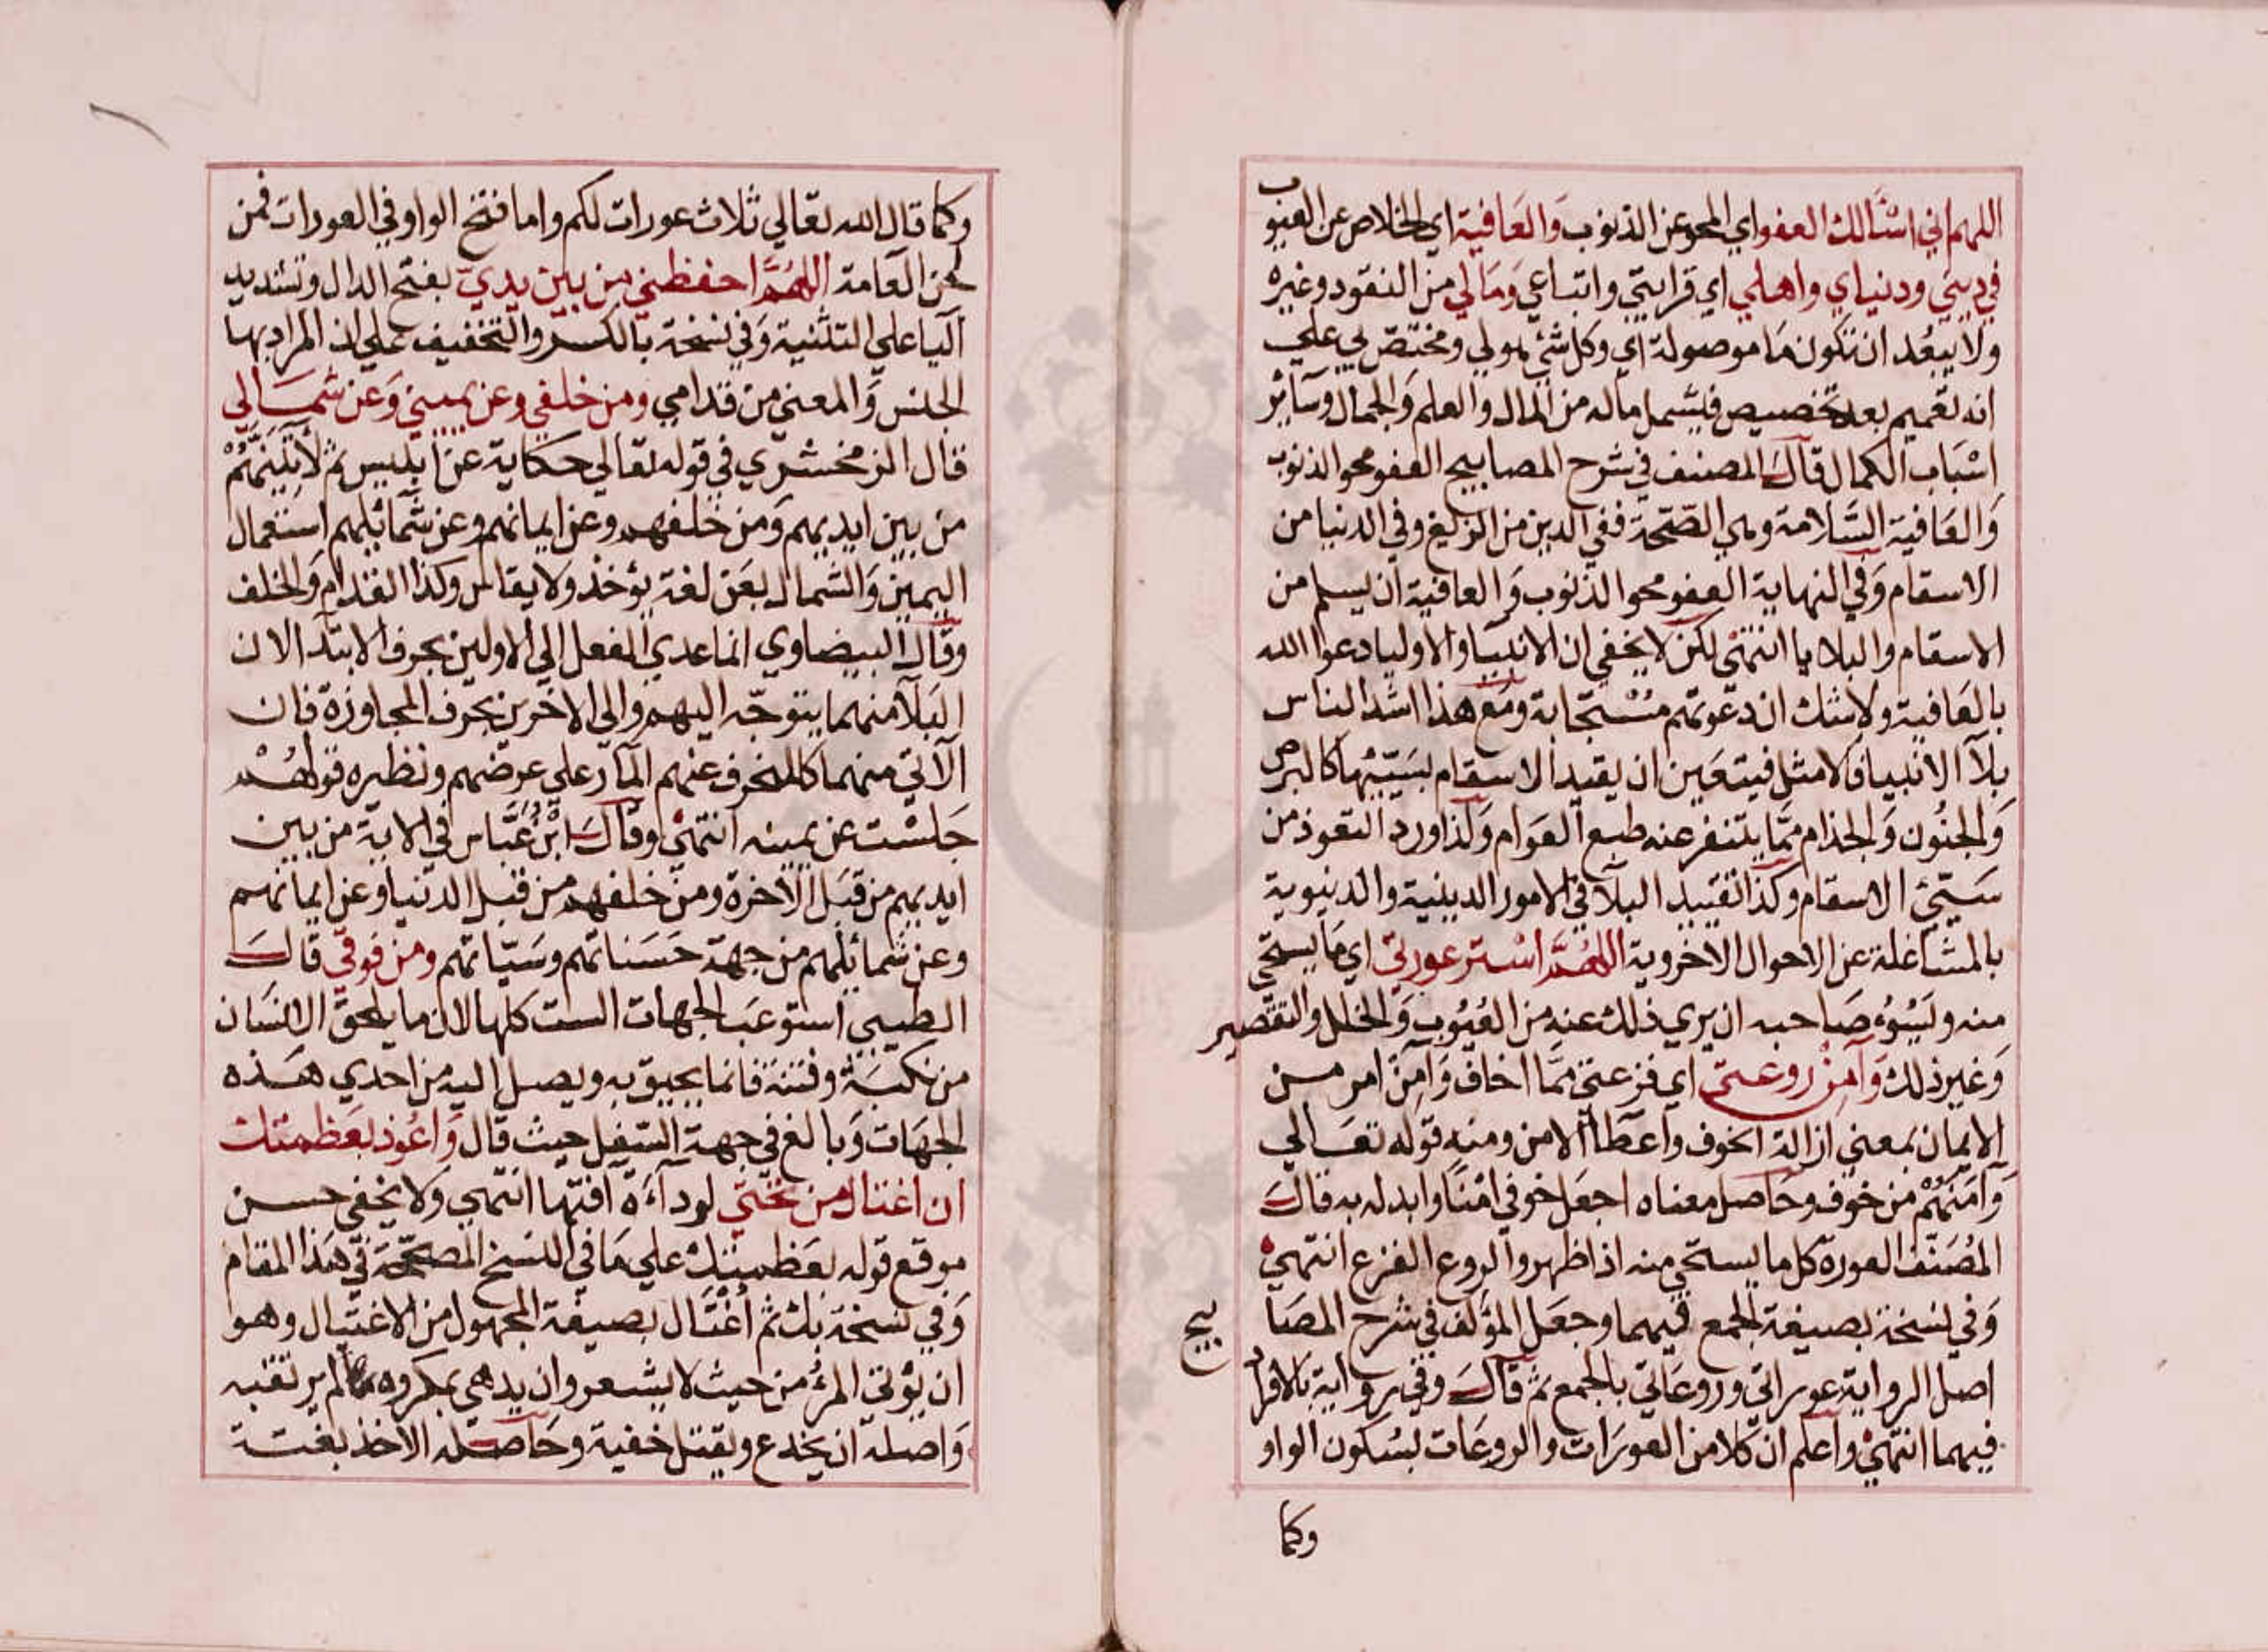 اللهم اني اسْئالك العفو اي المحو عن الذنوب وَالعَافية اي الخلاص عن العيوب
في ديني ودنياي واهلي اي قرابتي واتباعي وَمَالي من النقود وغيره
ولا يبعُد ان تكون مَا موصولة اي وكل شئ هو لي ومختصّ بي علي
انه تعميم بعد تخصيص فيشمل ماله من المال والعلم وَالجمال وسآئر
اسْبَاب الكمال قالَ المصنف في شرح المصابيح العفو محو الذنوب
وَالعَافية السَّلامة وهي الصّحّة ففي الدين من الزيغ وفي الدنيا من
الاسقام وَفي النهاية العفو محو الذنوب وَالعافية ان يسلم من
الاسقام والبلايا انتهيْ لكن لا يخفي ان الانبيا والاوليا دعوا الله
بالعَافية ولا شك ان دعوتهم مُسْتجَابة ومَع هذا اشد الناس
بلآ الانبيا فالامثل فيتعَين ان يقيد الاسقام بسَيّئِهَا كالبرص
وَالجنُون وَالجذام ممَّا يتنفر عنه طبع العَوام وَلذا ورد التعوذ من
سَيّئِ الاسقام وكذا تقييد البلآ في الامور الدينية والدنيوية
بالمشَاغلة عن الاحوال الاخروية اللهُمَّ اسْتر عورتي اي مَا يستحي
منه ويَسُوُء صَاحبه ان يري ذلك عنه من العُيُوب وَالخلل والتقصير
وَغير ذلك وَآمِنْ روعتي اي فزعتي ممَّا اخاف وَآمِنْ امر من
الايمان بمعني ازالة الخوف واعطآ الامن ومنه قوله تعَالي
وَآمَنَهُمْ من خوف وحَاصل معناه اجعَل خوفي امْنًا وابدله به قالَ
المُصَنّف العورة كل ما يستحي منه اذا ظهر والروع الفزع انتهيْ
وَفي نسخة بصيغة الجمع فيهما وجعَل المؤلف في شرح المصَابيح
اصل الرواية عوراتي وروعَاتي بالجمع ثم قالَ وفي رواية بالافراد
فيهما انتهيْ واعلم ان كلا من العورَات والروعَات بسُكون الواو
وكما
وكما قال الله تعَالي ثلاث عورات لكم واما فتح الواو في العورات فمن
لحن العَامة اللهُمَّ احفظني من بين يديّ بفتح الدال وتشديد
اليا علي التثنية وَفي نسخة بالكسر والتخفيف علي ان المراد بها
الجنس وَالمعني من قدامي ومن خلفي وعن يميني وَعن شمَالي
قال الزمخشري في قوله تعَالي حكاية عن ابليس ثم لآتينهُمْ
من بين ايديهم وَمن خلفهم وعن ايمانهم وعن شمائلهم استعمال
اليمين وَالشمال بعَن لغة يؤخذ ولا يقاس وكذا القدام وَالخلف
وقال البيضاوي انما عدي الفعل الي الاولين بحرف الابتدآ لان
البَلآ منهما يتوجّه اليهم والي الاخرين بحرف المجاوزة فان
الآتي منهما كالمنحرف عنهم المآر علي عرضهم ونظيره قولهُمْ
جَلسْت عن يمينه انتهيْ وقالَ ابْنُ عَبَّاس في الاية من بين
ايديهم من قبَل الآخرة ومن خلفهم من قبل الدنيا وعن ايمانهم
وعن شمائلهم من جهة حَسَناتهم وسَيّاتهم ومن فوقي قالَ
الطيبي استوعَبَ الجهات الست كلها لان ما يلحق الانسَان
من نكبَةٍ وفتنة فانما يحيق به ويصل اليه من احدي هَذه
الجهَات وَبالغ في جهة السّفل حيث قال وَاعُوذ بعَظمتك
ان اغتال من تحتي لردآءَة آفتها انتهي ولا يخفي حسن
موقع قوله بعَظمتك علي مَا في النسَخ المصحّحَة في هَذا المقام
وَفي نسخة بك ثم أُغْتَال بصيغة المجهول من الاغتيال وهو
ان يؤتي المرءُ من حيث لا يشعر وان يدهي بمكروه لم يرتقبه
وَاصله ان يخدع ويقتل خفية وحَاصله الاخذ بغتة